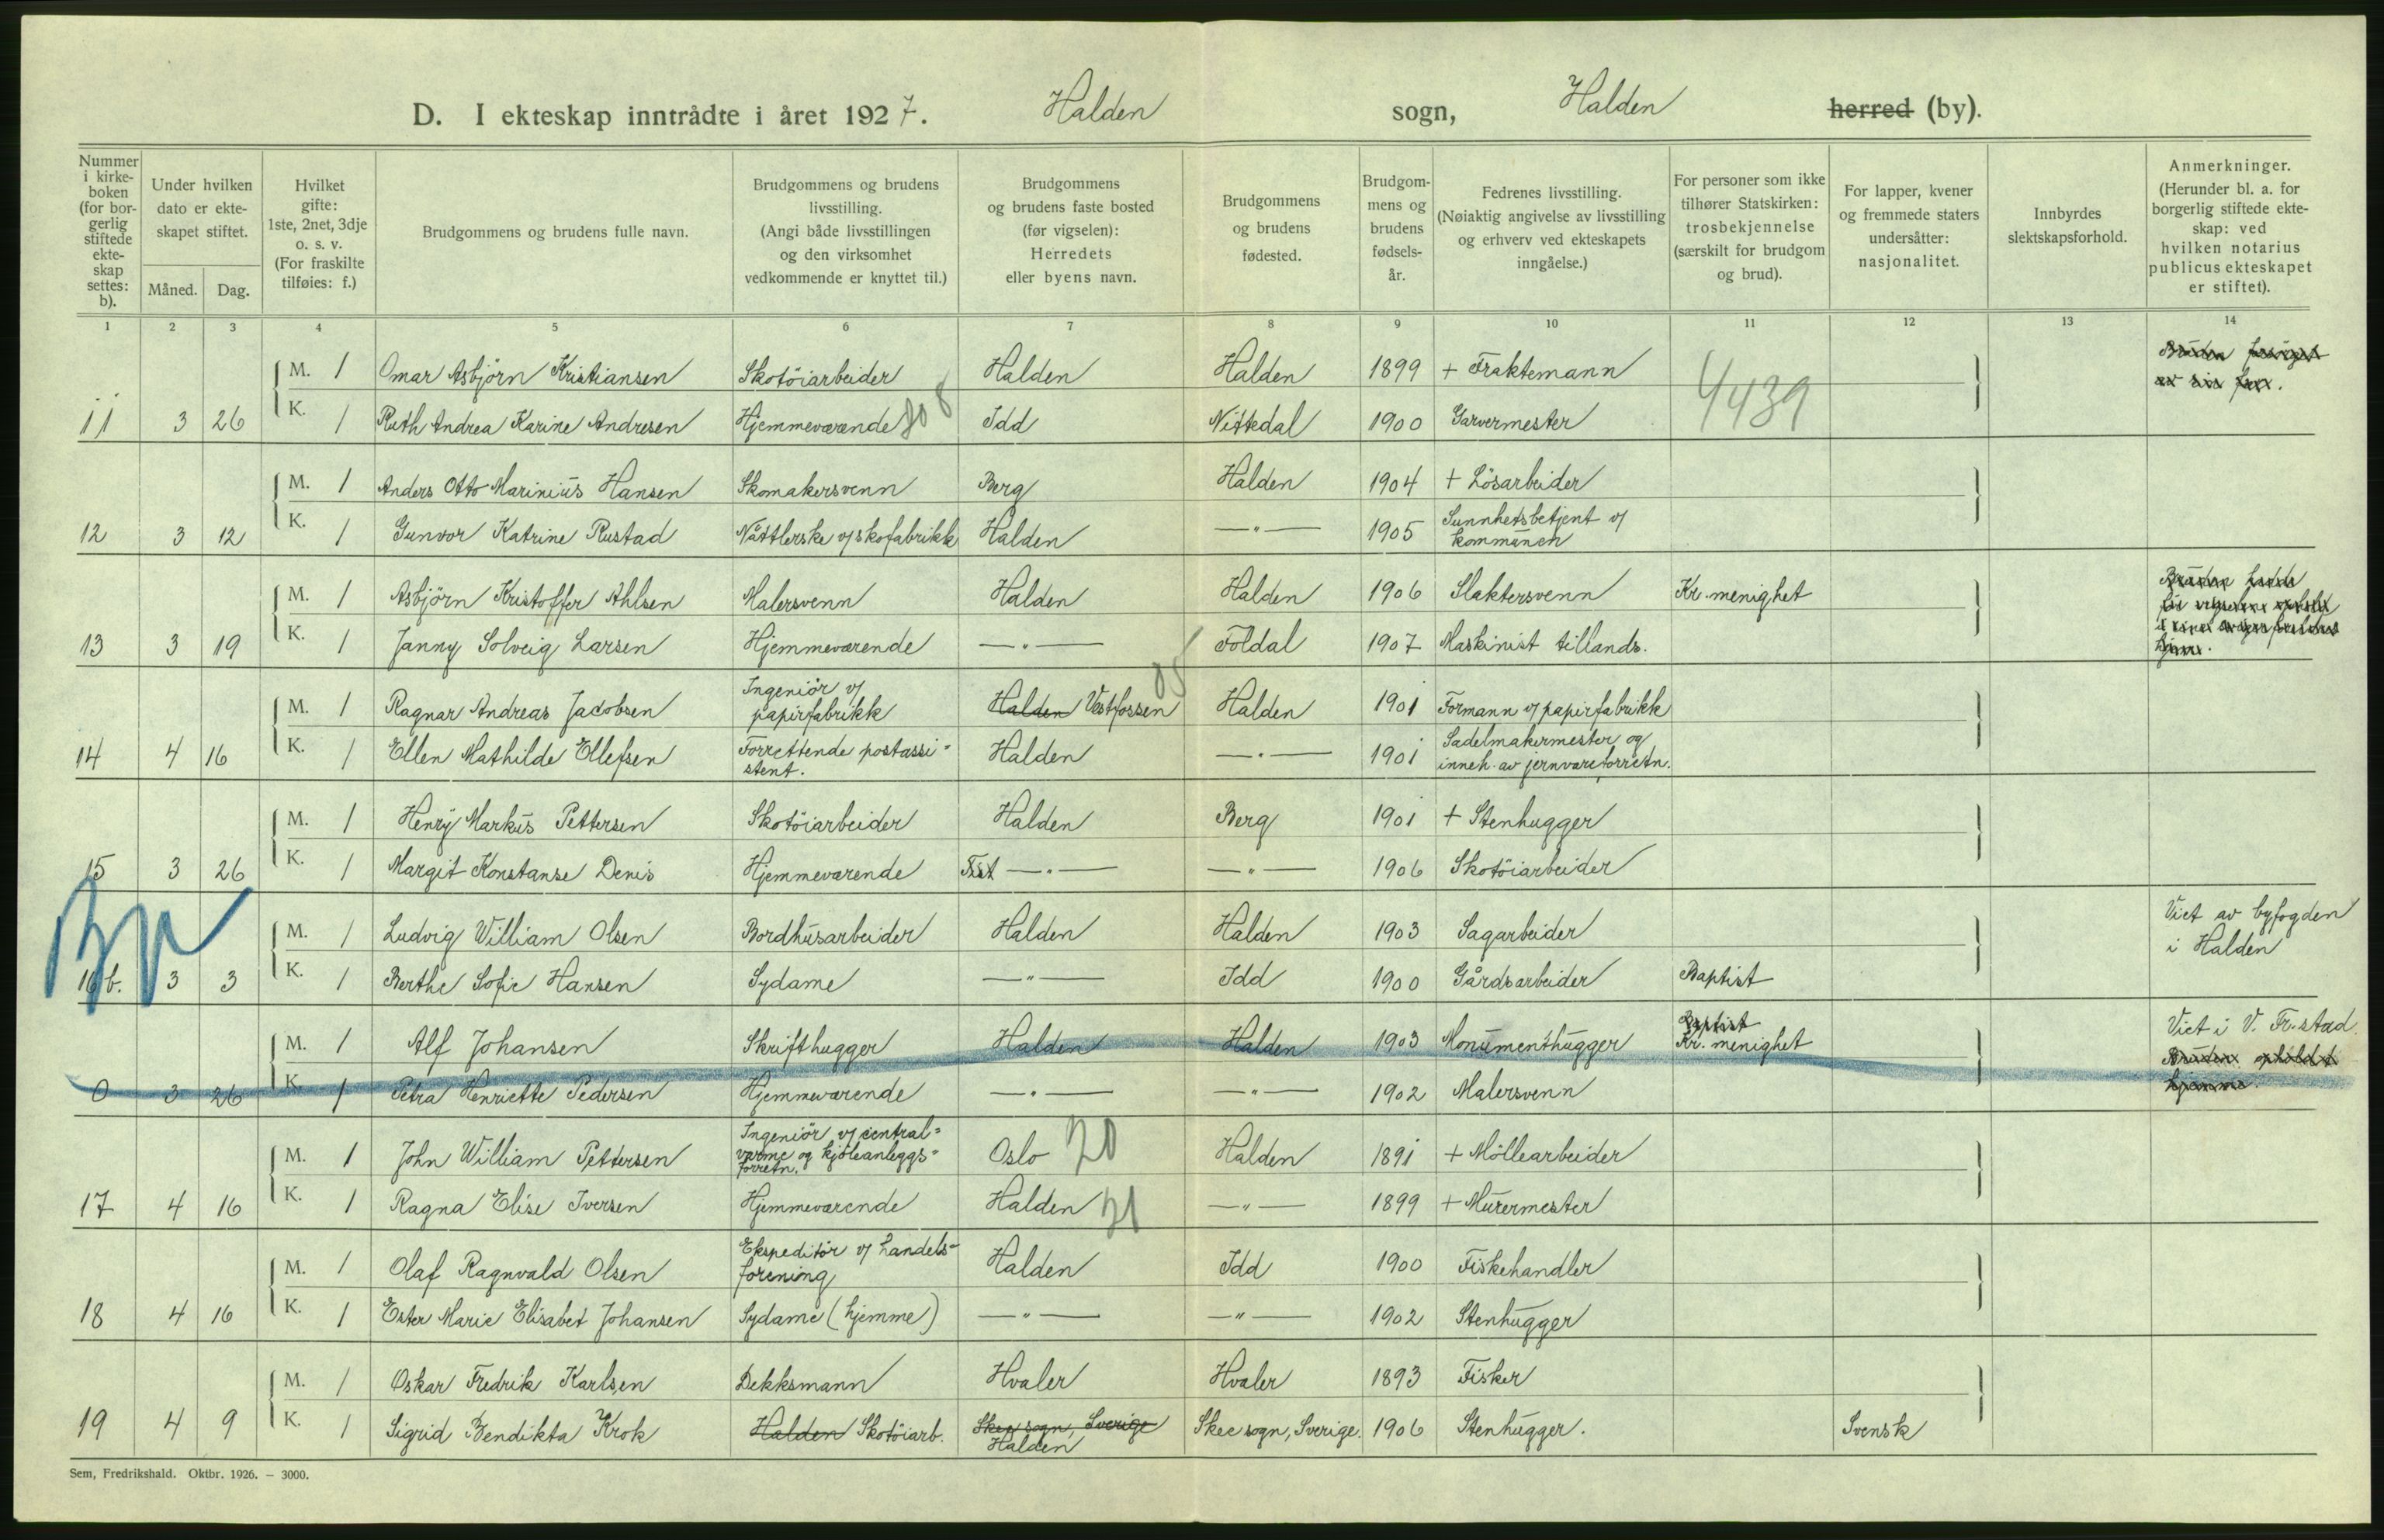 D. I ekteskap inntrådte i året 1927. Halden sogn, Halden herred (by).
Nummer i kirkeboken (for borgerlig stiftede ekteskap settes: b).
Under hvilken dato er ekteskapet stiftet.
Måned. Dag.
Hvilket gifte: 1ste, 2net, 3dje o. s. v. (For fraskilte tilføies: f.)
Brudgommens og brudens fulle navn.
Brudgommens og brudens livsstilling. (Angi både livsstillingen og den virksomhet vedkommende er knyttet til.)
Brudgommens og brudens faste bosted (før vigselen): Herredets eller byens navn.
Brudgommens og brudens fødested.
Brudgommens og brudens fødselsår.
Fedrenes livsstilling. (Nøiaktig angivelse av livsstilling og erhverv ved ekteskapets inngåelse.)
For personer som ikke tilhører Statskirken: trosbekjennelse (særskilt for brudgom og brud).
For lapper, kvener og fremmede staters undersåtter: nasjonalitet.
Innbyrdes slektskapsforhold.
Anmerkninger. (Herunder bl. a. for borgerlig stiftede ekteskap: ved hvilken notarius publicus ekteskapet er stiftet).
1 2 3 4 5 6 7 8 9 10 11 12 13 14
M. 1 Omar Asbjörn Kristiansen Skotöiarbeider Halden Halden 1899 + Fraktemann 4439
11 3 26 K. 1 Ruth Andrea Karine Andresen Hjemmeværende Idd Nittedal 1900 Garvermester
M. 1 Anders Otto Marinius Hansen Skomakersvenn Berg Halden 1904 + Lösarbeider
12 3 12 K. 1 Gunvor Katrine Rustad Nåttlerske v/ skofabrikk Halden —"— 1905 Sunnhetsbetjent v/ kommunen
M. 1 Asbjörn Kristoffer Ahlsen Malersvenn Halden Halden 1906 Slaktersvenn Kr. menighet
13 3 19 K. 1 Janny Solveig Larsen Hjemmeværende —"— Foldal 1907 Maskinist tillands.
M. 1 Ragnar Andreas Jacobsen Ingeniör v/ papirfabrikk Halden Vestfossen Halden 1901 Formann v/ papirfabrikk
14 4 16 K. 1 Ellen Mathilde Ellefsen Forrettende postassistent. Halden —"— 1901 Sadelmakermester og inneh. av jernvareforretn.
M. 1 Henry Markus Pettersen Skotöiarbeider Halden Berg 1901 + Stenhugger
15 3 26 K. 1 Margit Konstanse Denis Hjemmeværende —"— —"— 1906 Skotöiarbeider
M. 1 Ludvig William Olsen Bordhusarbeider Halden Halden 1903 Sagarbeider Viet av byfogden i Halden
16 b. 3 3 K. 1 Berthe Sofie Hansen Sydame —"— Idd 1900 Gårdsarbeider Baptist
M. 1 Alf Johansen Skrifthugger Halden Halden 1903 Monumenthugger Baptist Kr. menighet Viet i V. Fr.stad.
0 3 26 K. 1 Petra Henriette Pedersen Hjemmeværende —"— —"— 1902 Malersvenn
M. 1 John William Pettersen Ingeniör v/ centralvarme og kjöleanleggsforretn. Oslo 20 Halden 1891 + Möllearbeider
17 4 16 K. 1 Ragna Elise Iversen Hjemmeværende Halden 21 —"— 1899 + Murermester
M. 1 Olaf Ragnvald Olsen Ekspeditör v/ handelsforening Halden Idd 1900 Fiskehandler
18 4 16 K. 1 Ester Marie Elisabet Johansen Sydame (hjemme) —"— —"— 1902 Stenhugger
M. 1 Oskar Fredrik Karlsen Dekksmann Hvaler Hvaler 1893 Fisker
19 4 9 K. 1 Sigrid Bendikta Krok Halden Skotöiarb. Skee sogn, Sverige Halden Skee sogn, Sverige. 1906 Stenhugger. Svensk
Sem, Fredrikshald. Oktbr. 1926. – 3000.